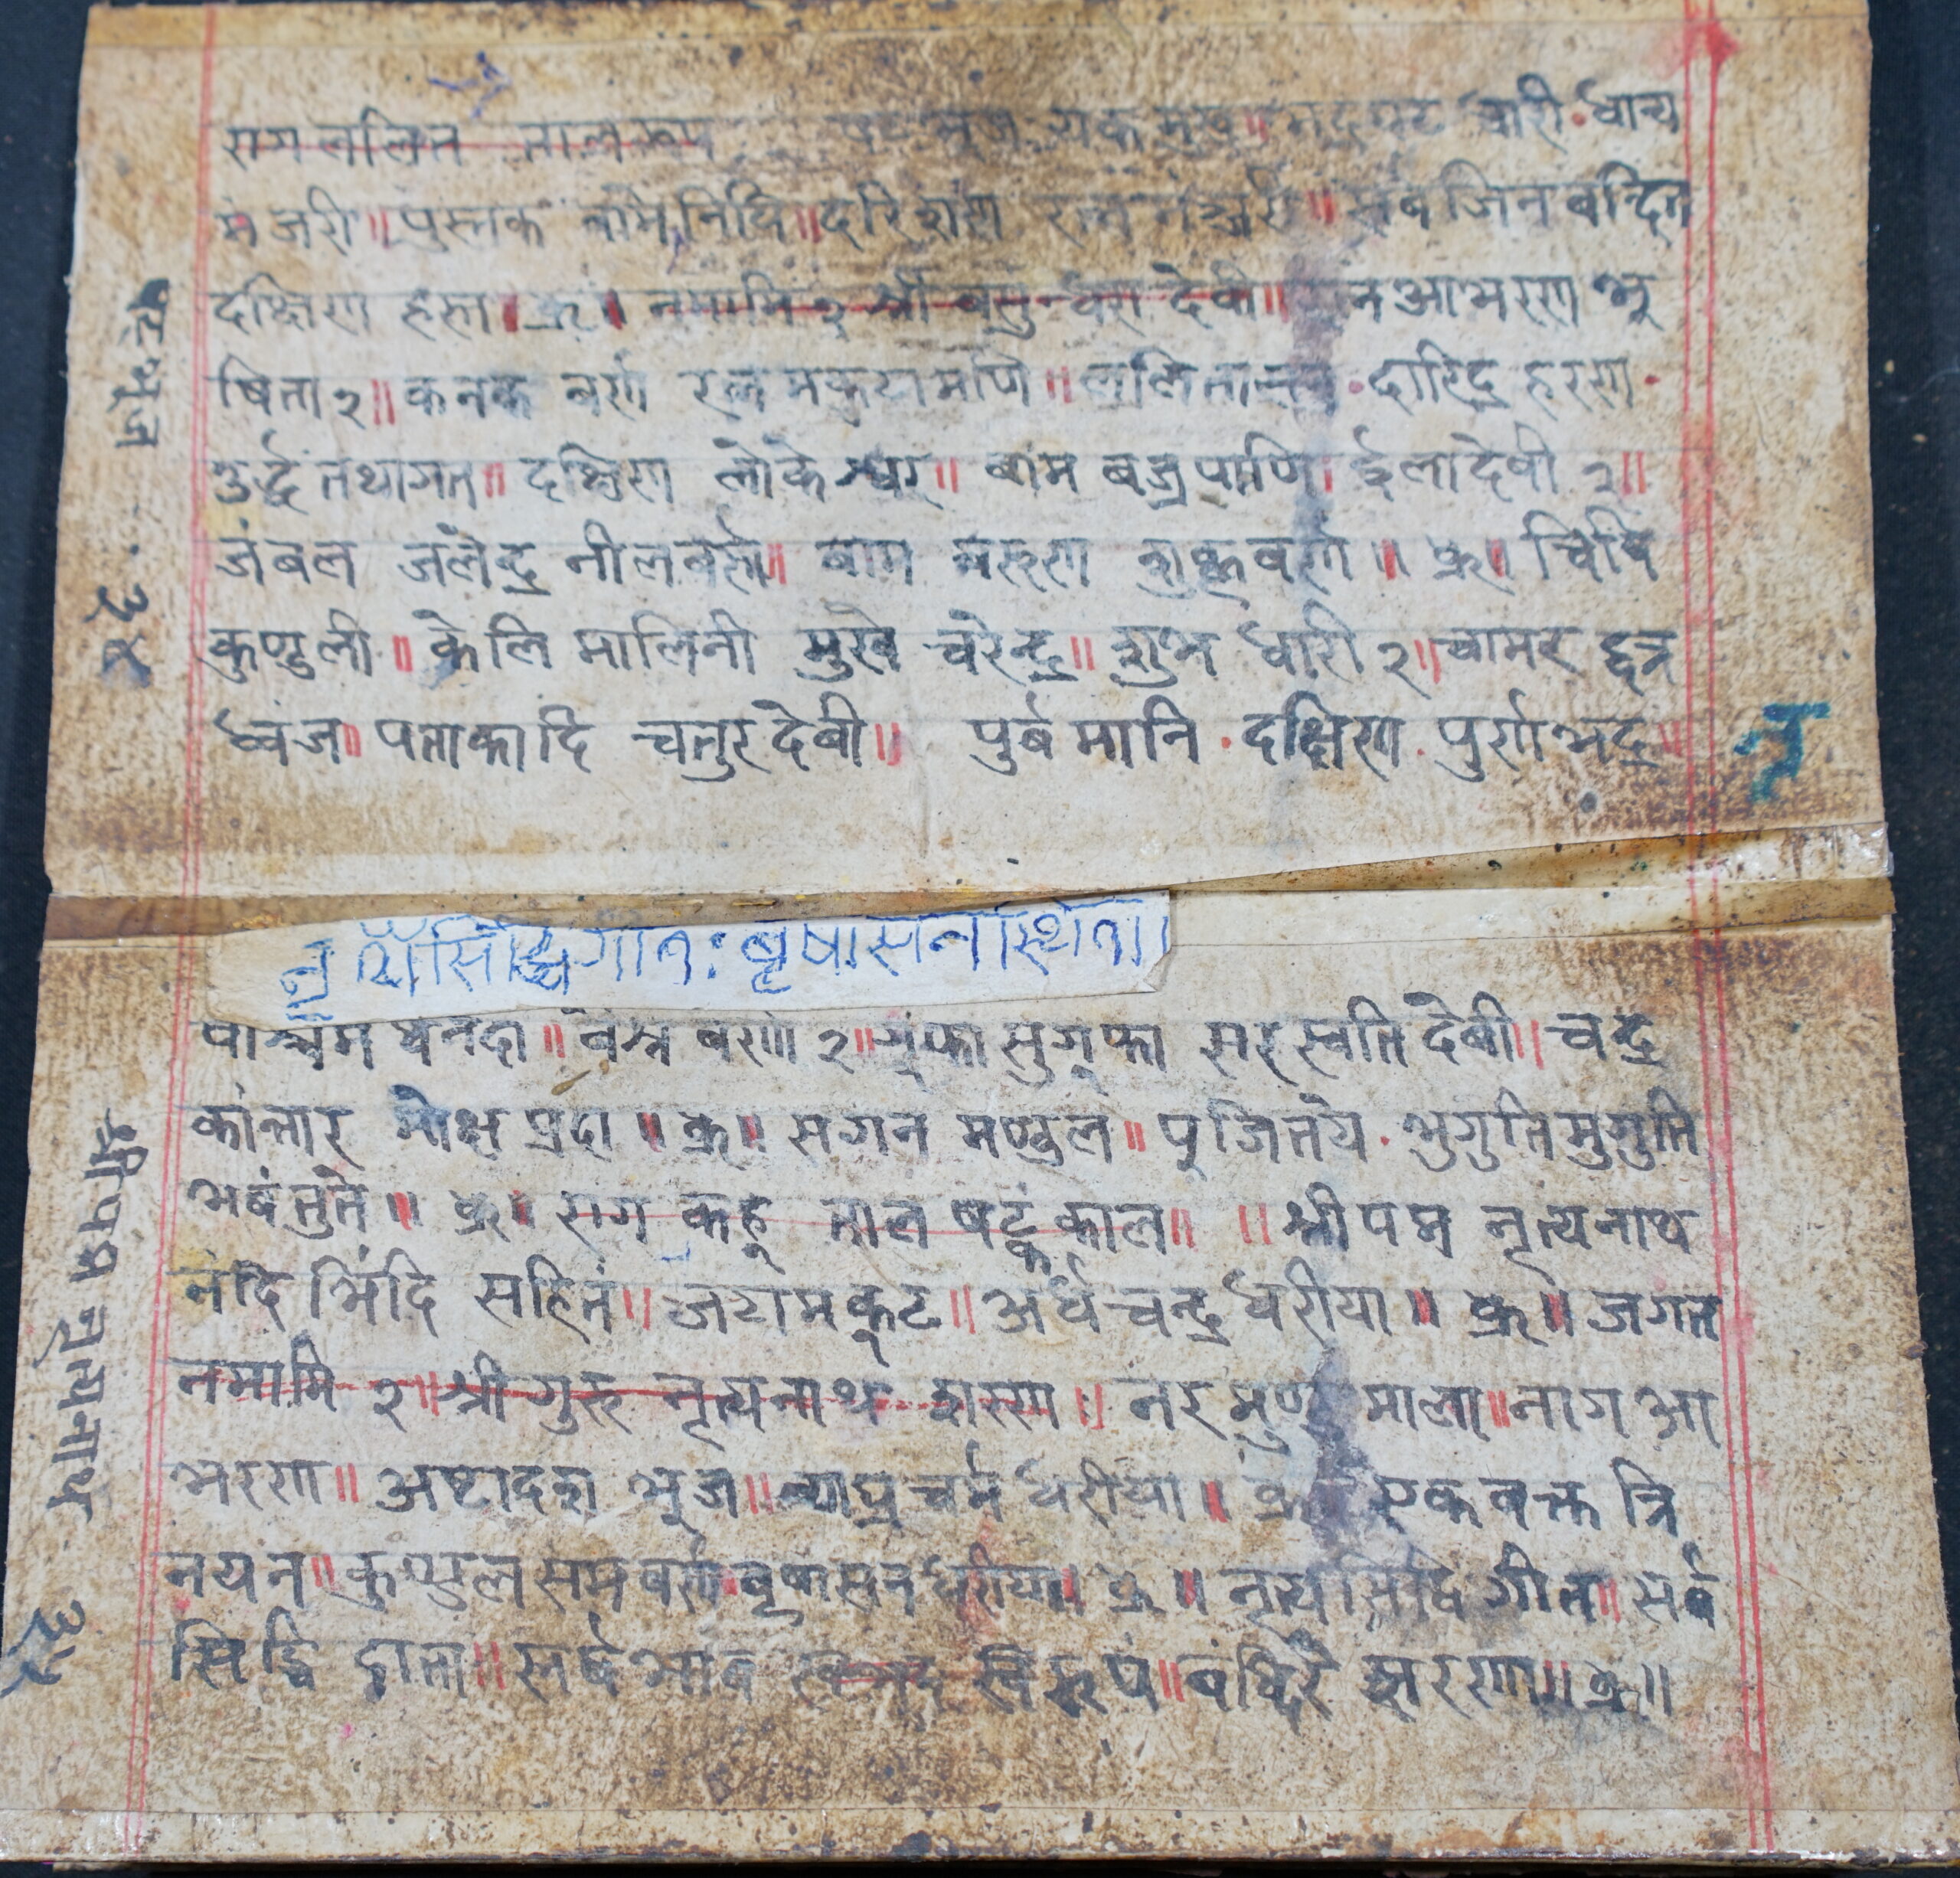 राग ललित ताल षट भुज एक मुख॥ धारी · धान्य
मंजरी॥ पुस्तक वामे निधि॥ दरि शरण जिन वन्दित
दक्षिण हस्त॥ क्रु॥ नमामि २ श्री वसुन्धरा देवी॥ आभरण भू
षिता २॥ कनक वर्ण रत्न मकुटा मणि॥ ललितासन · दारिद्र हरण ·
उर्द्ध तथागत॥ दक्षिण लोकेश्वर॥ वाम वज्रपाणि। ईलादेवी २॥
जंबल जलेन्द्र नीलवर्ण॥ वाम वरुण शुक्लवर्ण॥ क्रु॥ चिवि
कुण्डली॥ केलि मालिनी मुखे चरेन्द्र॥ शुभ धारी २॥ चामर छत्र
ध्वज॥ पताकादि चतुर देवी॥ पुर्व मानि · दक्षिण · पुर्णभद्र॥
षट भूज ३४
पश्चिम धनदा॥ वैश्र वरण २॥ गुप्ता सुगुप्ता सरस्वति देवी॥ चन्द्र
कान्तार मोक्ष प्रदा॥ क्रु॥ सगन मण्डल॥ पूजितये · भुगुति मुगुति
भवंतुते॥ क्रु॥ राग कहू ताल षट्कंकाल॥ ॥ श्री पद्म नृत्यनाथ
नंदि भिंदि सहितं॥ जटामकूट॥ अर्धचन्द्र धरीया॥ क्रु॥ जगत
नमामि २॥ श्री गुरु नृत्यनाथ शरण॥ नर मुण्ड माला॥ नाग आ
भरण॥ अष्टादश भूज॥ व्याघ्र चर्म धरीया॥ एक वक्त त्रि
नयन॥ कुण्डल सम वर्ण वृषासन धरीया॥ क्रु॥ नृत्य सिद्धि गीत॥ सर्व
सिद्धि दाता॥ सर्व भाव स्वरूपं॥ शरण॥ क्रु॥
श्री पद्म नृत्यनाथ ३५